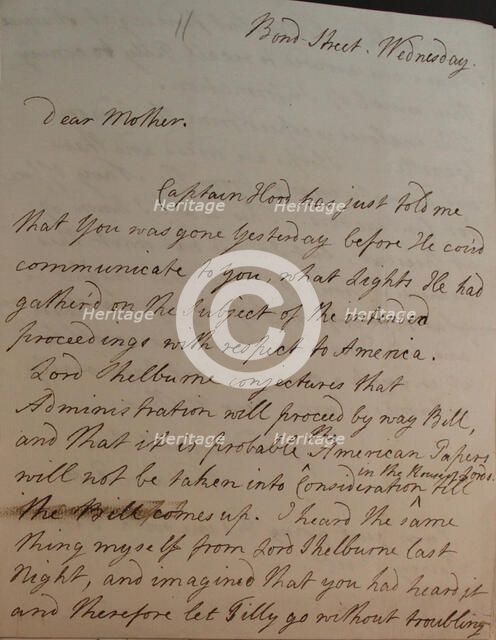 Bond-Street. Wednesday.
Dear Mother.
Captain Hood has just told me
that you was gone yesterday before He cou'd
communicate to you, what Lights He had
gather'd on the Subject of the intended
proceedings with respect to America.
Lord Shelburne conjectures that
Administration will proceed by way Bill,
and that it is probable the American Papers
will not be taken into Consideration in the House of Lords. till
the Bill comes up. I heard the same
thing myself from Lord Shelburne last
Night, and imagined that you had heard it
and therefore let Tilly go without troubling
Heritage Heritage
Heritage Heritage
Heritage Heritage
Heritage Heritage